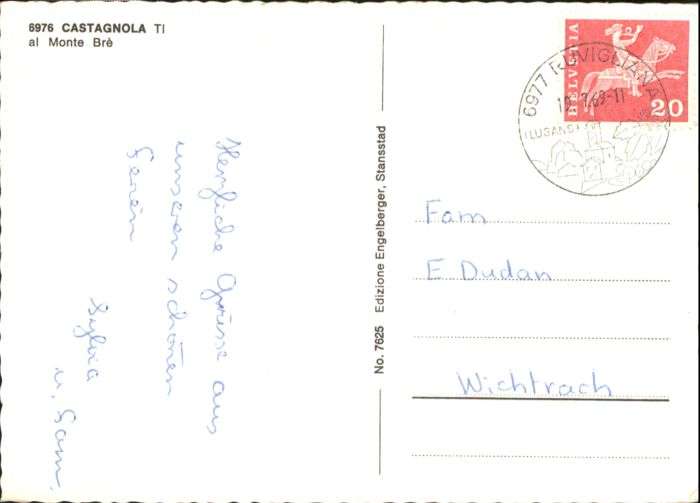 6976 CASTAGNOLA TI
al Monte Brè
Herzliche Grüsse aus
unseren schönen
Ferien
Sylvia
u. Fam.
No. 7625 Edizione Engelberger, Stansstad
HELVETIA
20
6977 RUVIGLIANA
-7.69-11
Fam
E Dudan
Wichtrach